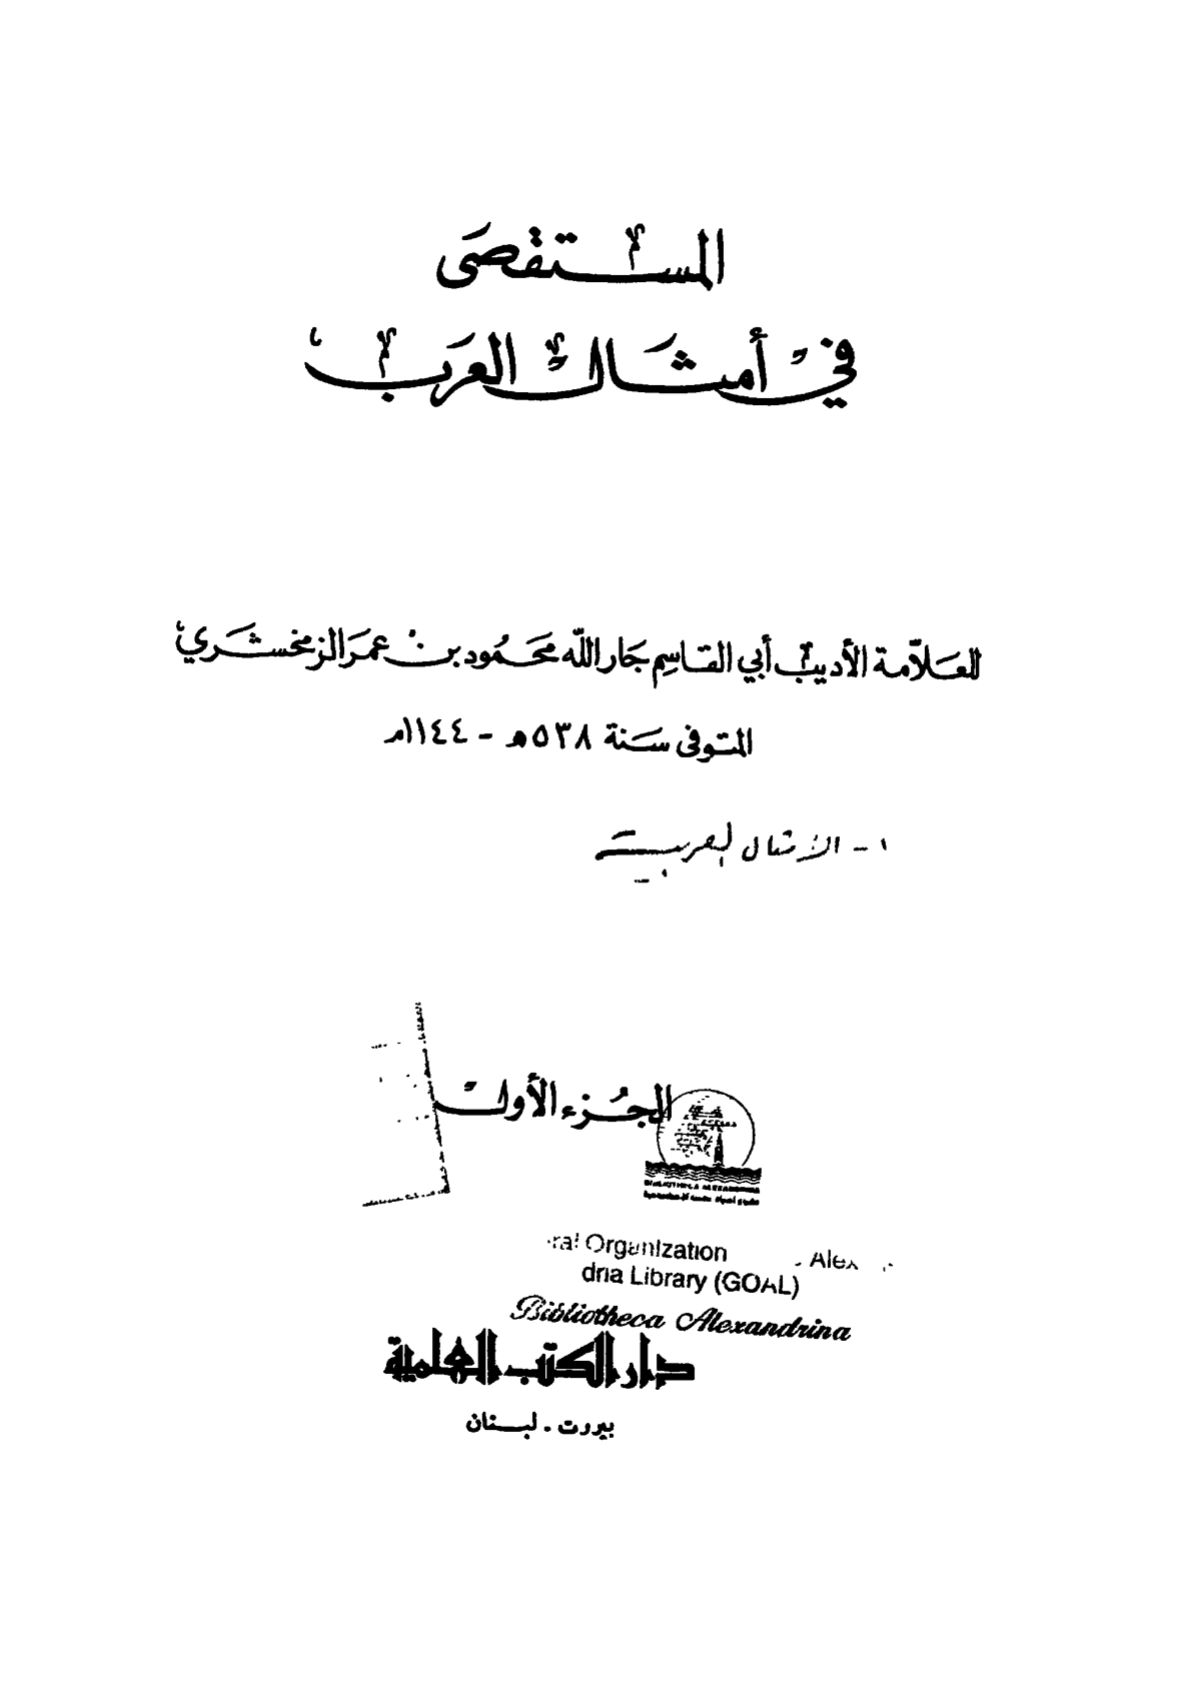 المستقصى
في أمثال العرب
للعلامة الأديب أبي القاسم جار الله محمود بن عمر الزمخشري
المتوفى سنة ٥٣٨هـ - ١١٤٤م
١ - الأمثال العربية
الجزء الأول
BIBLIOTHECA ALEXANDRINA
Organization
Library (GOAL)
Bibliotheca Alexandrina
دار الكتب العلمية
بيروت . لبنان